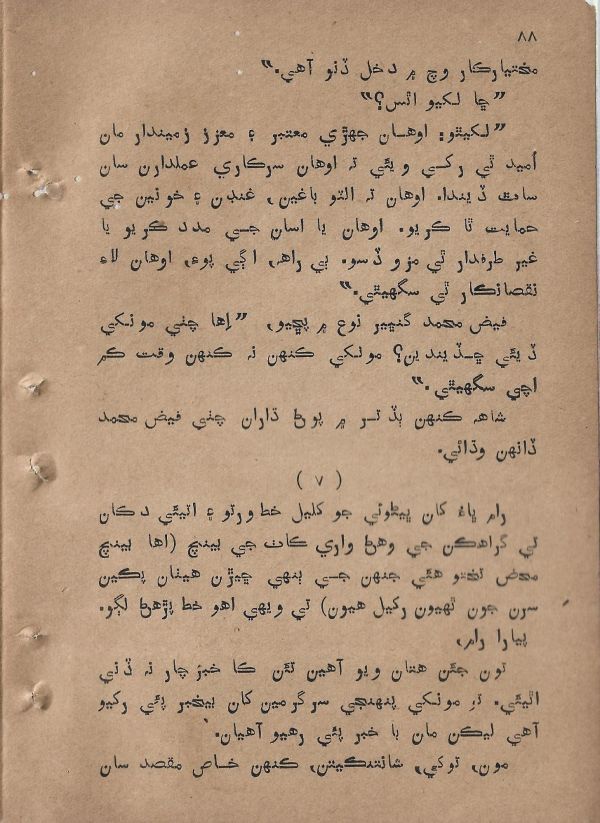 ۸۸
مختيارڪار وچ ۾ دخل ڏنو آهي.“
”ڇا لکيو اٿس؟“
”لکيٿو: اوهان جهڙي معتبر ۽ معزز زميندار مان
اميد ٿي رکي ويئي تہ اوهان سرڪاري عملدارن سان
ساٿ ڏيندا. اوهان تہ الٽو باغين، غنڊن ۽ خونين جي
حمايت ٿا ڪريو. اوهان يا اسان جي مدد ڪريو يا
غير طرفدار ٿي مزو ڏسو. ٻي راهہ، اڳي پوءِ، اوهان لاءِ
نقصانڪار ٿي سگهيٿي.“
فيض محمد گنڀير نوع ۾ پڇيو، ”اِها چٺي مونکي
ڏيئي ڇڏيندين؟ مونکي ڪنهن نہ ڪنهن وقت ڪم
اچي سگهيٿي.“
شاهہ ڪنهن ٻڏتر ۾ پوڻ ڌاران چٺي فيض محمد
ڏانهن وڌائي.
( ۷ )
رام ڀاءُ کان ڀيڻوئي جو کليل خط ورتو ۽ اتيئي دڪان
تي گراهڪن جي وهڻ واري ڪاٺ جي بينچ (اها بينچ
محض تختو هئي جنهن جي ٻنهي ڇيڙن هيٺان پڪين
سرن جون ٿهيون رکيل هيون) تي ويهي اهو خط پڙهڻ لڳو.
پيارا رام،
تون جئن هتان ويو آهين تئن ڪا خبر چار نہ ڏني
اٿيئي. تو مونکي پنهنجي سرگرمين کان بيخبر پئي رکيو
آهي ليڪن مان با خبر پئي رهيو آهيان.
مون، توکي، شانتنڪيتن، ڪنهن خاص مقصد سان